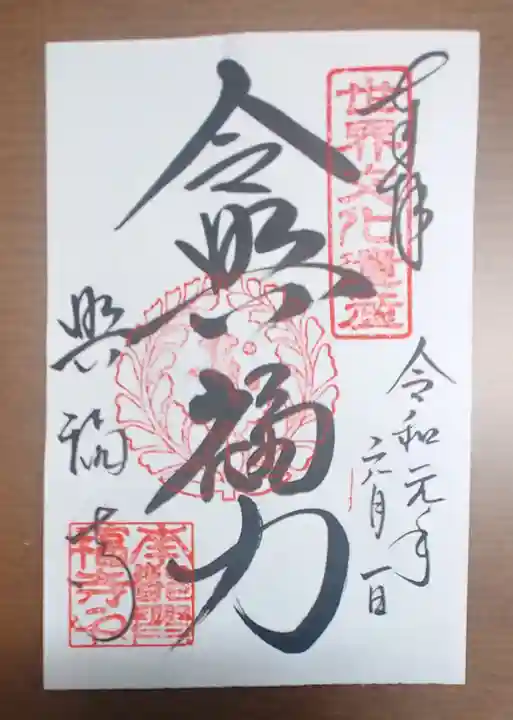 奉拝
世界文化遺産
令和元年
六月一日
令興福力
興福寺